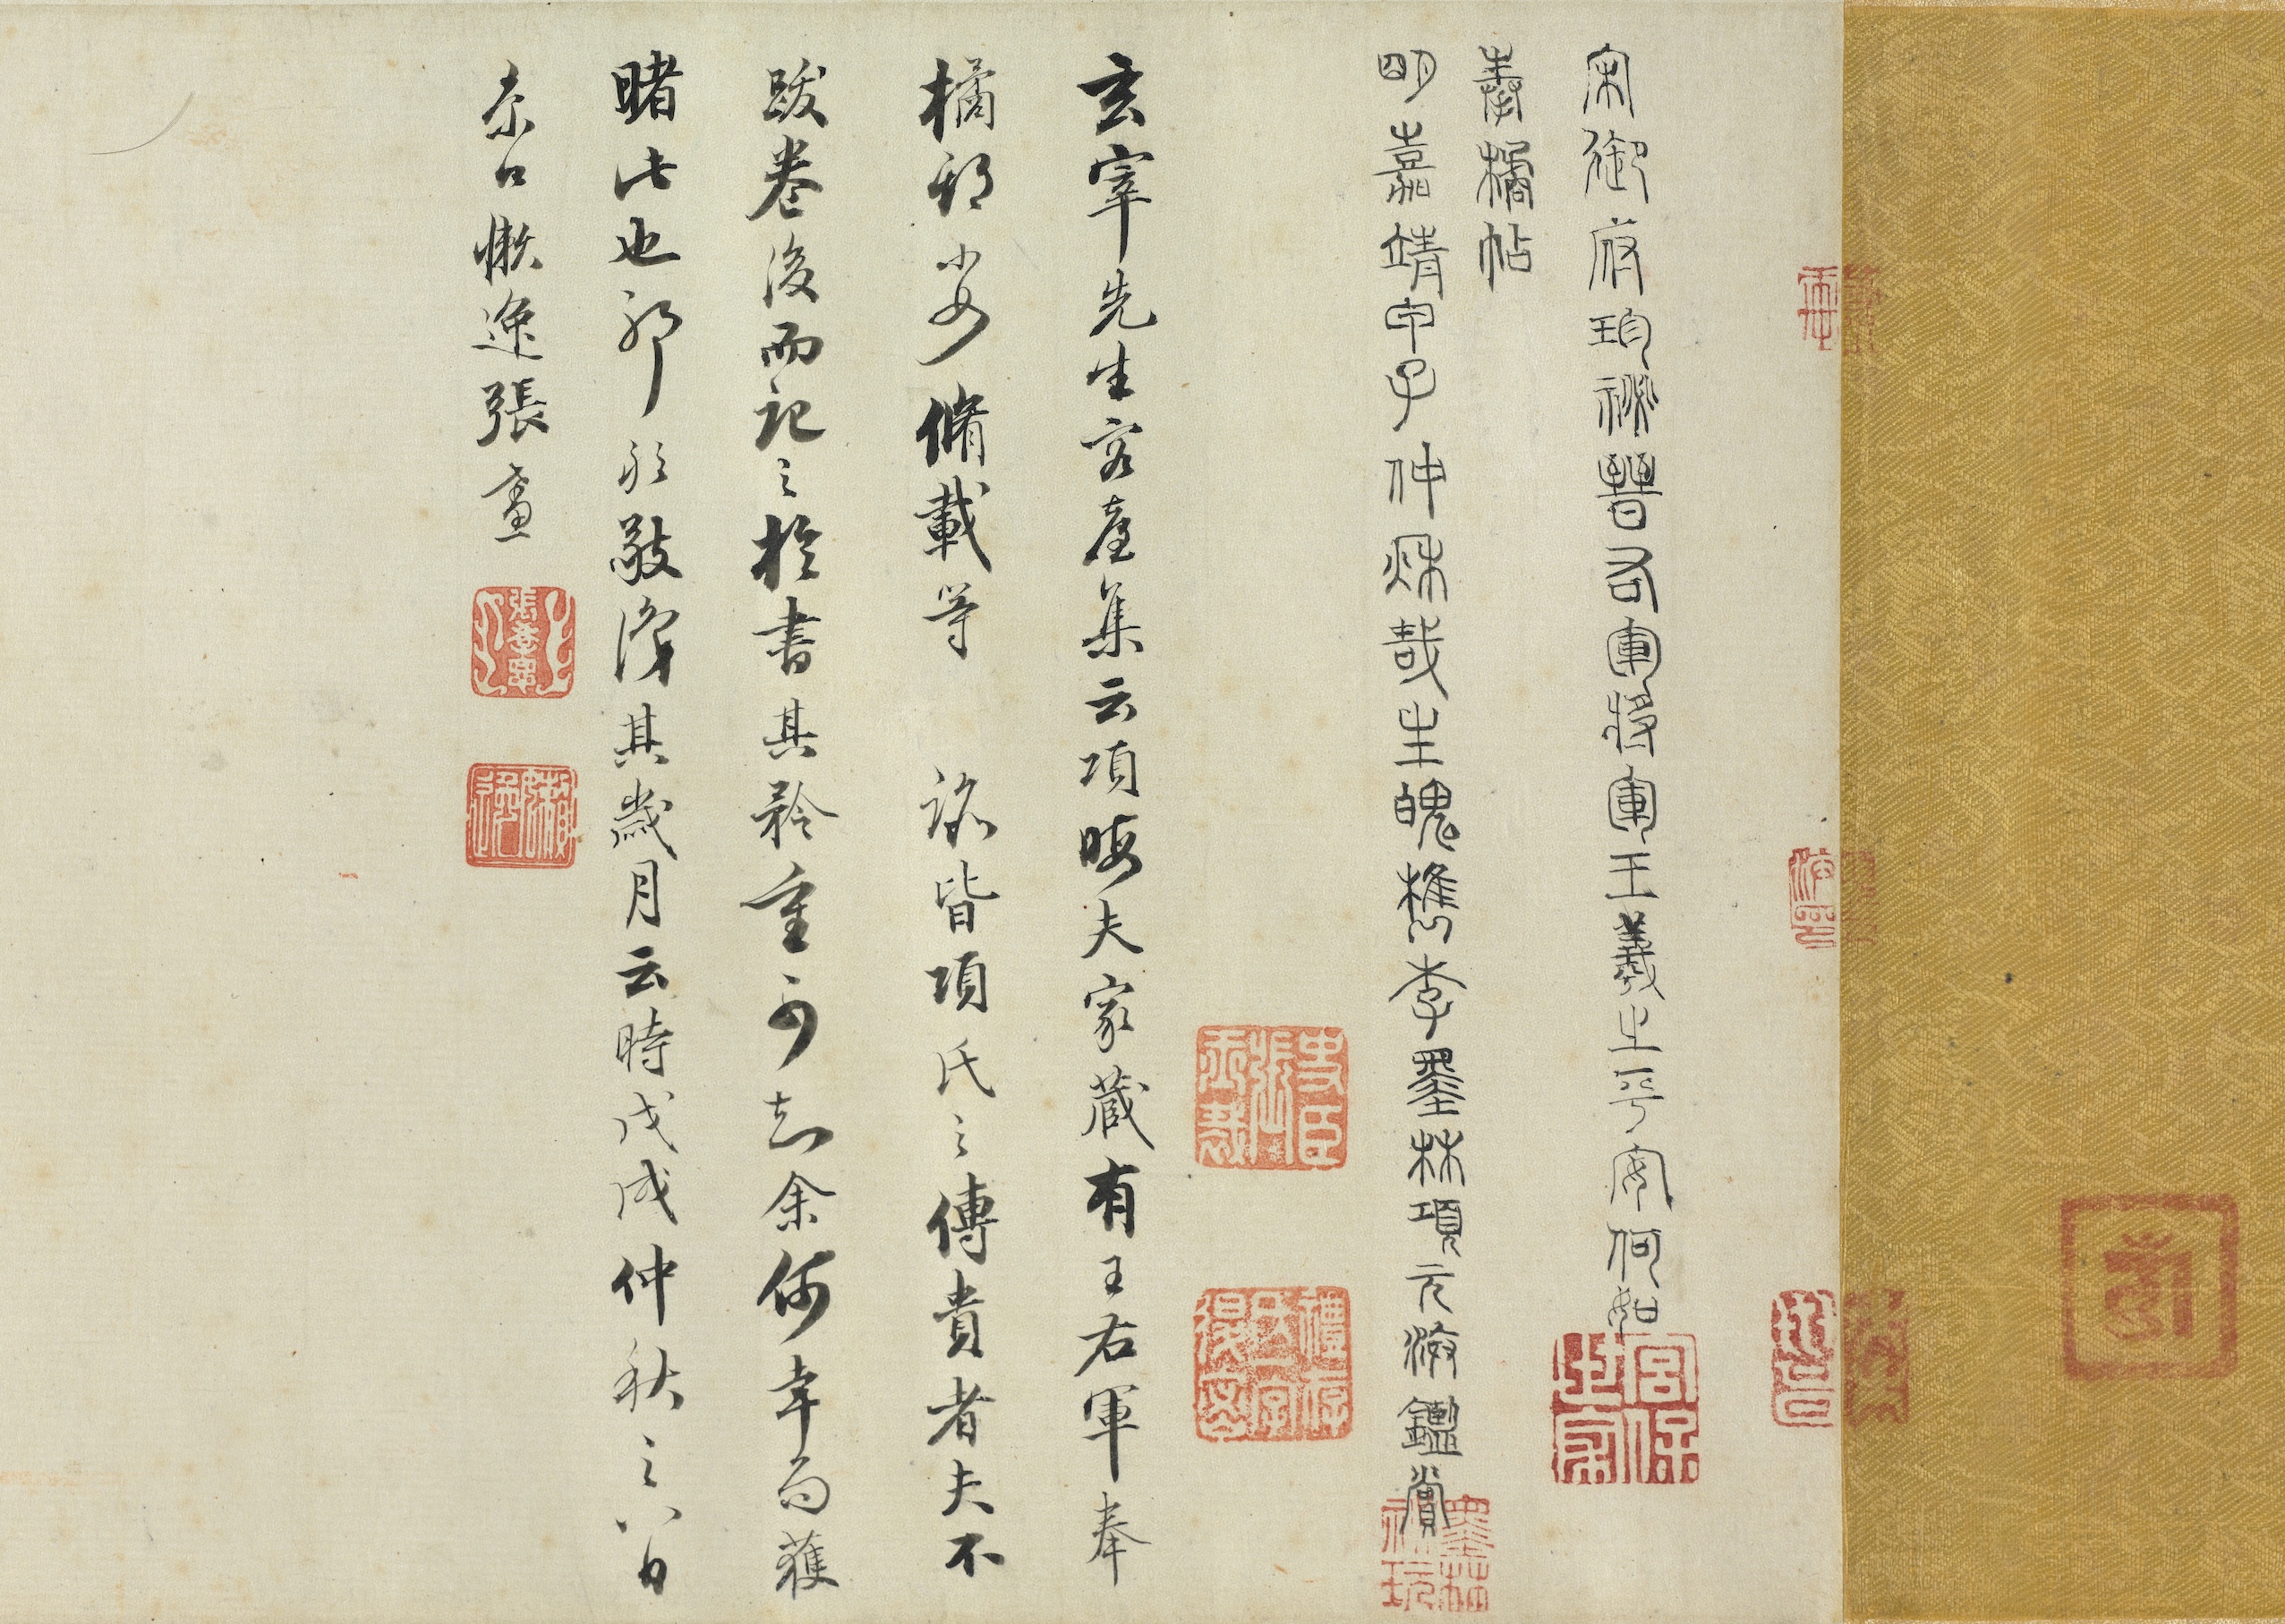 宋御府珍祕晉右軍將軍王羲之平安何如
奉橘帖
明嘉靖甲子仲秋哉生魄檇李墨林項元汴鑑賞
玄宰先生容臺集云項晦夫家藏有王右軍奉
橘郗 脩載等 皆項氏之傳貴者夫不
跋卷後而記之於書其矜重可知余何幸而獲
睹此也耶 敬識其歲月云時戊戌仲秋之八日
京口懶逸張
史臣張
宮保世家
墨林祕玩